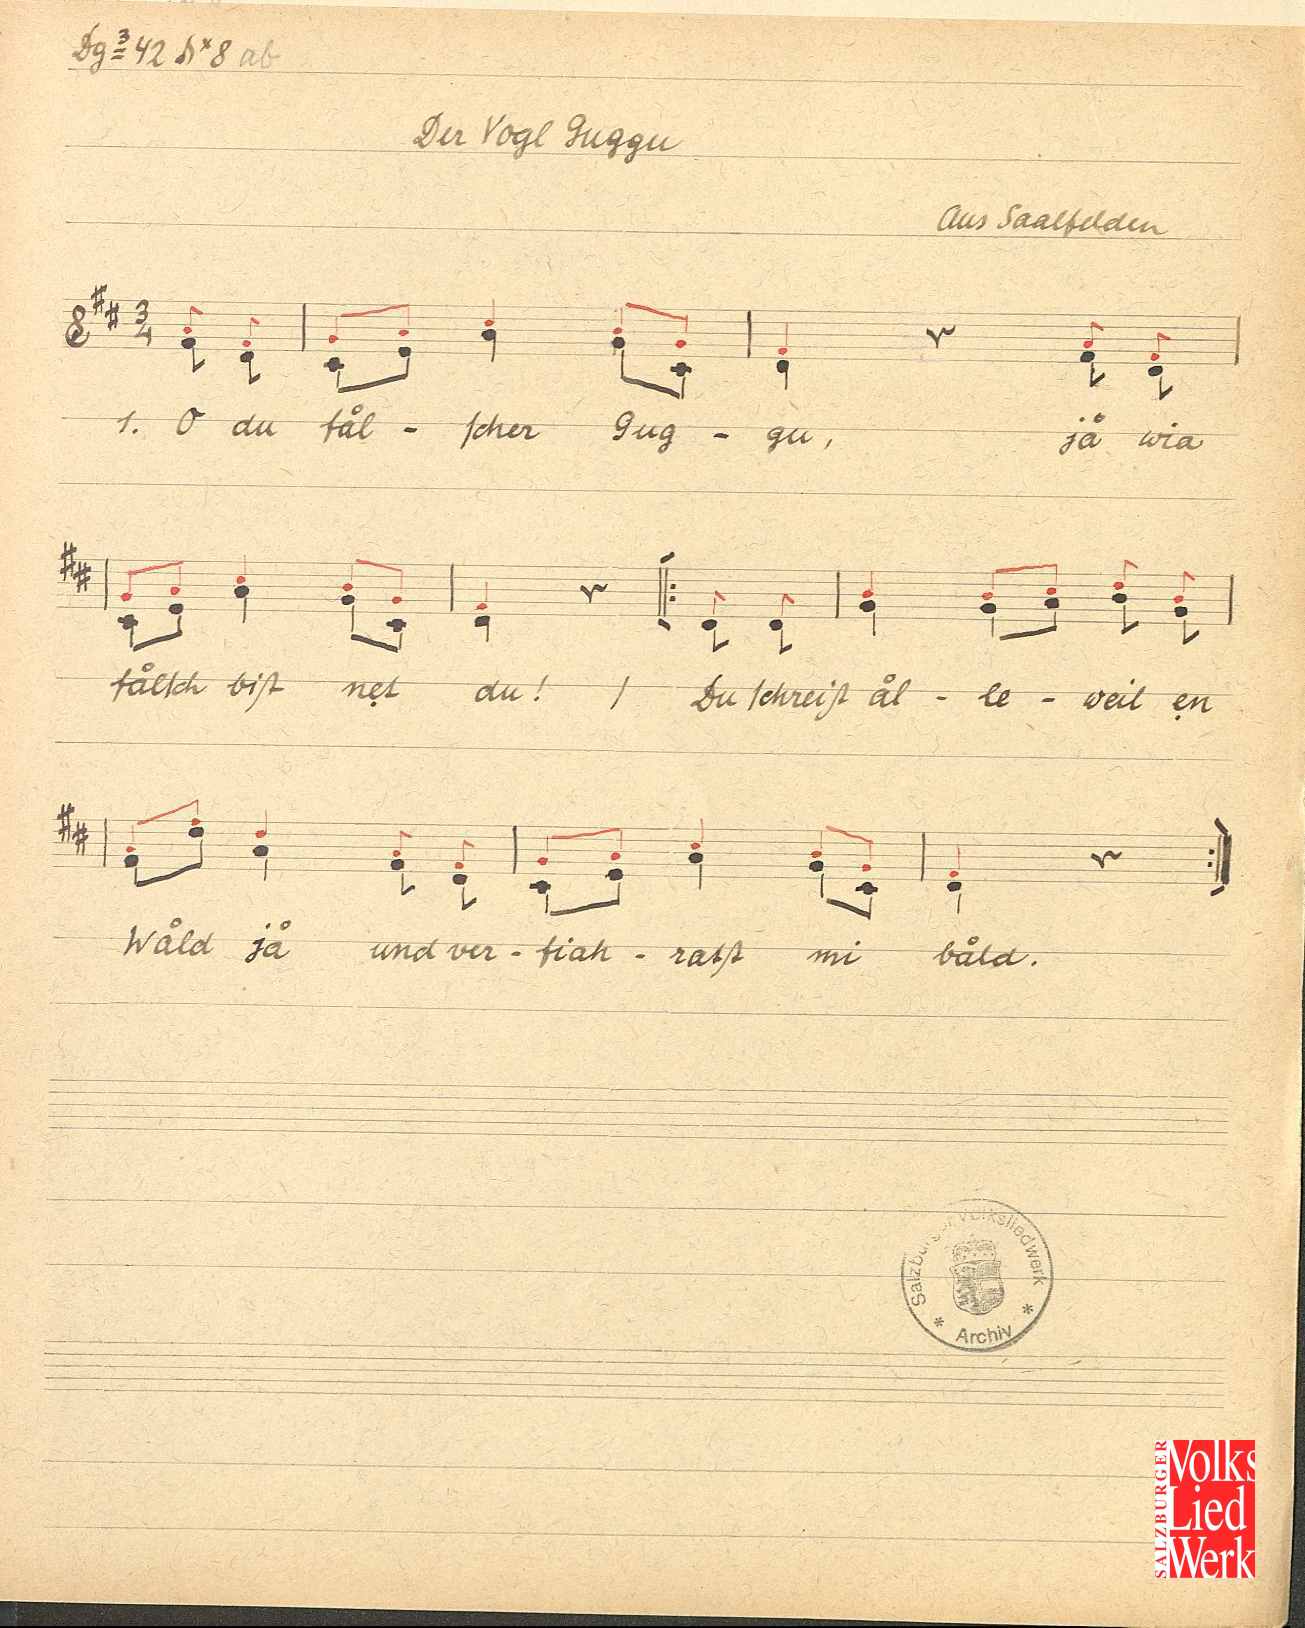 Dg 3 42 N× 8 ab
Der Vogl Guggu
Aus Saalfelden
3
4
1. O du fål - scher Gug - gu, jå wia
fålsch bist nęt du! / Du schreist ål - le - weil ęn
Wåld jå und ver - fiah - ratst mi båld.
Salzburger Volksliedwerk
* Archiv *
SALZBURGER
Volks
Lied
Werk